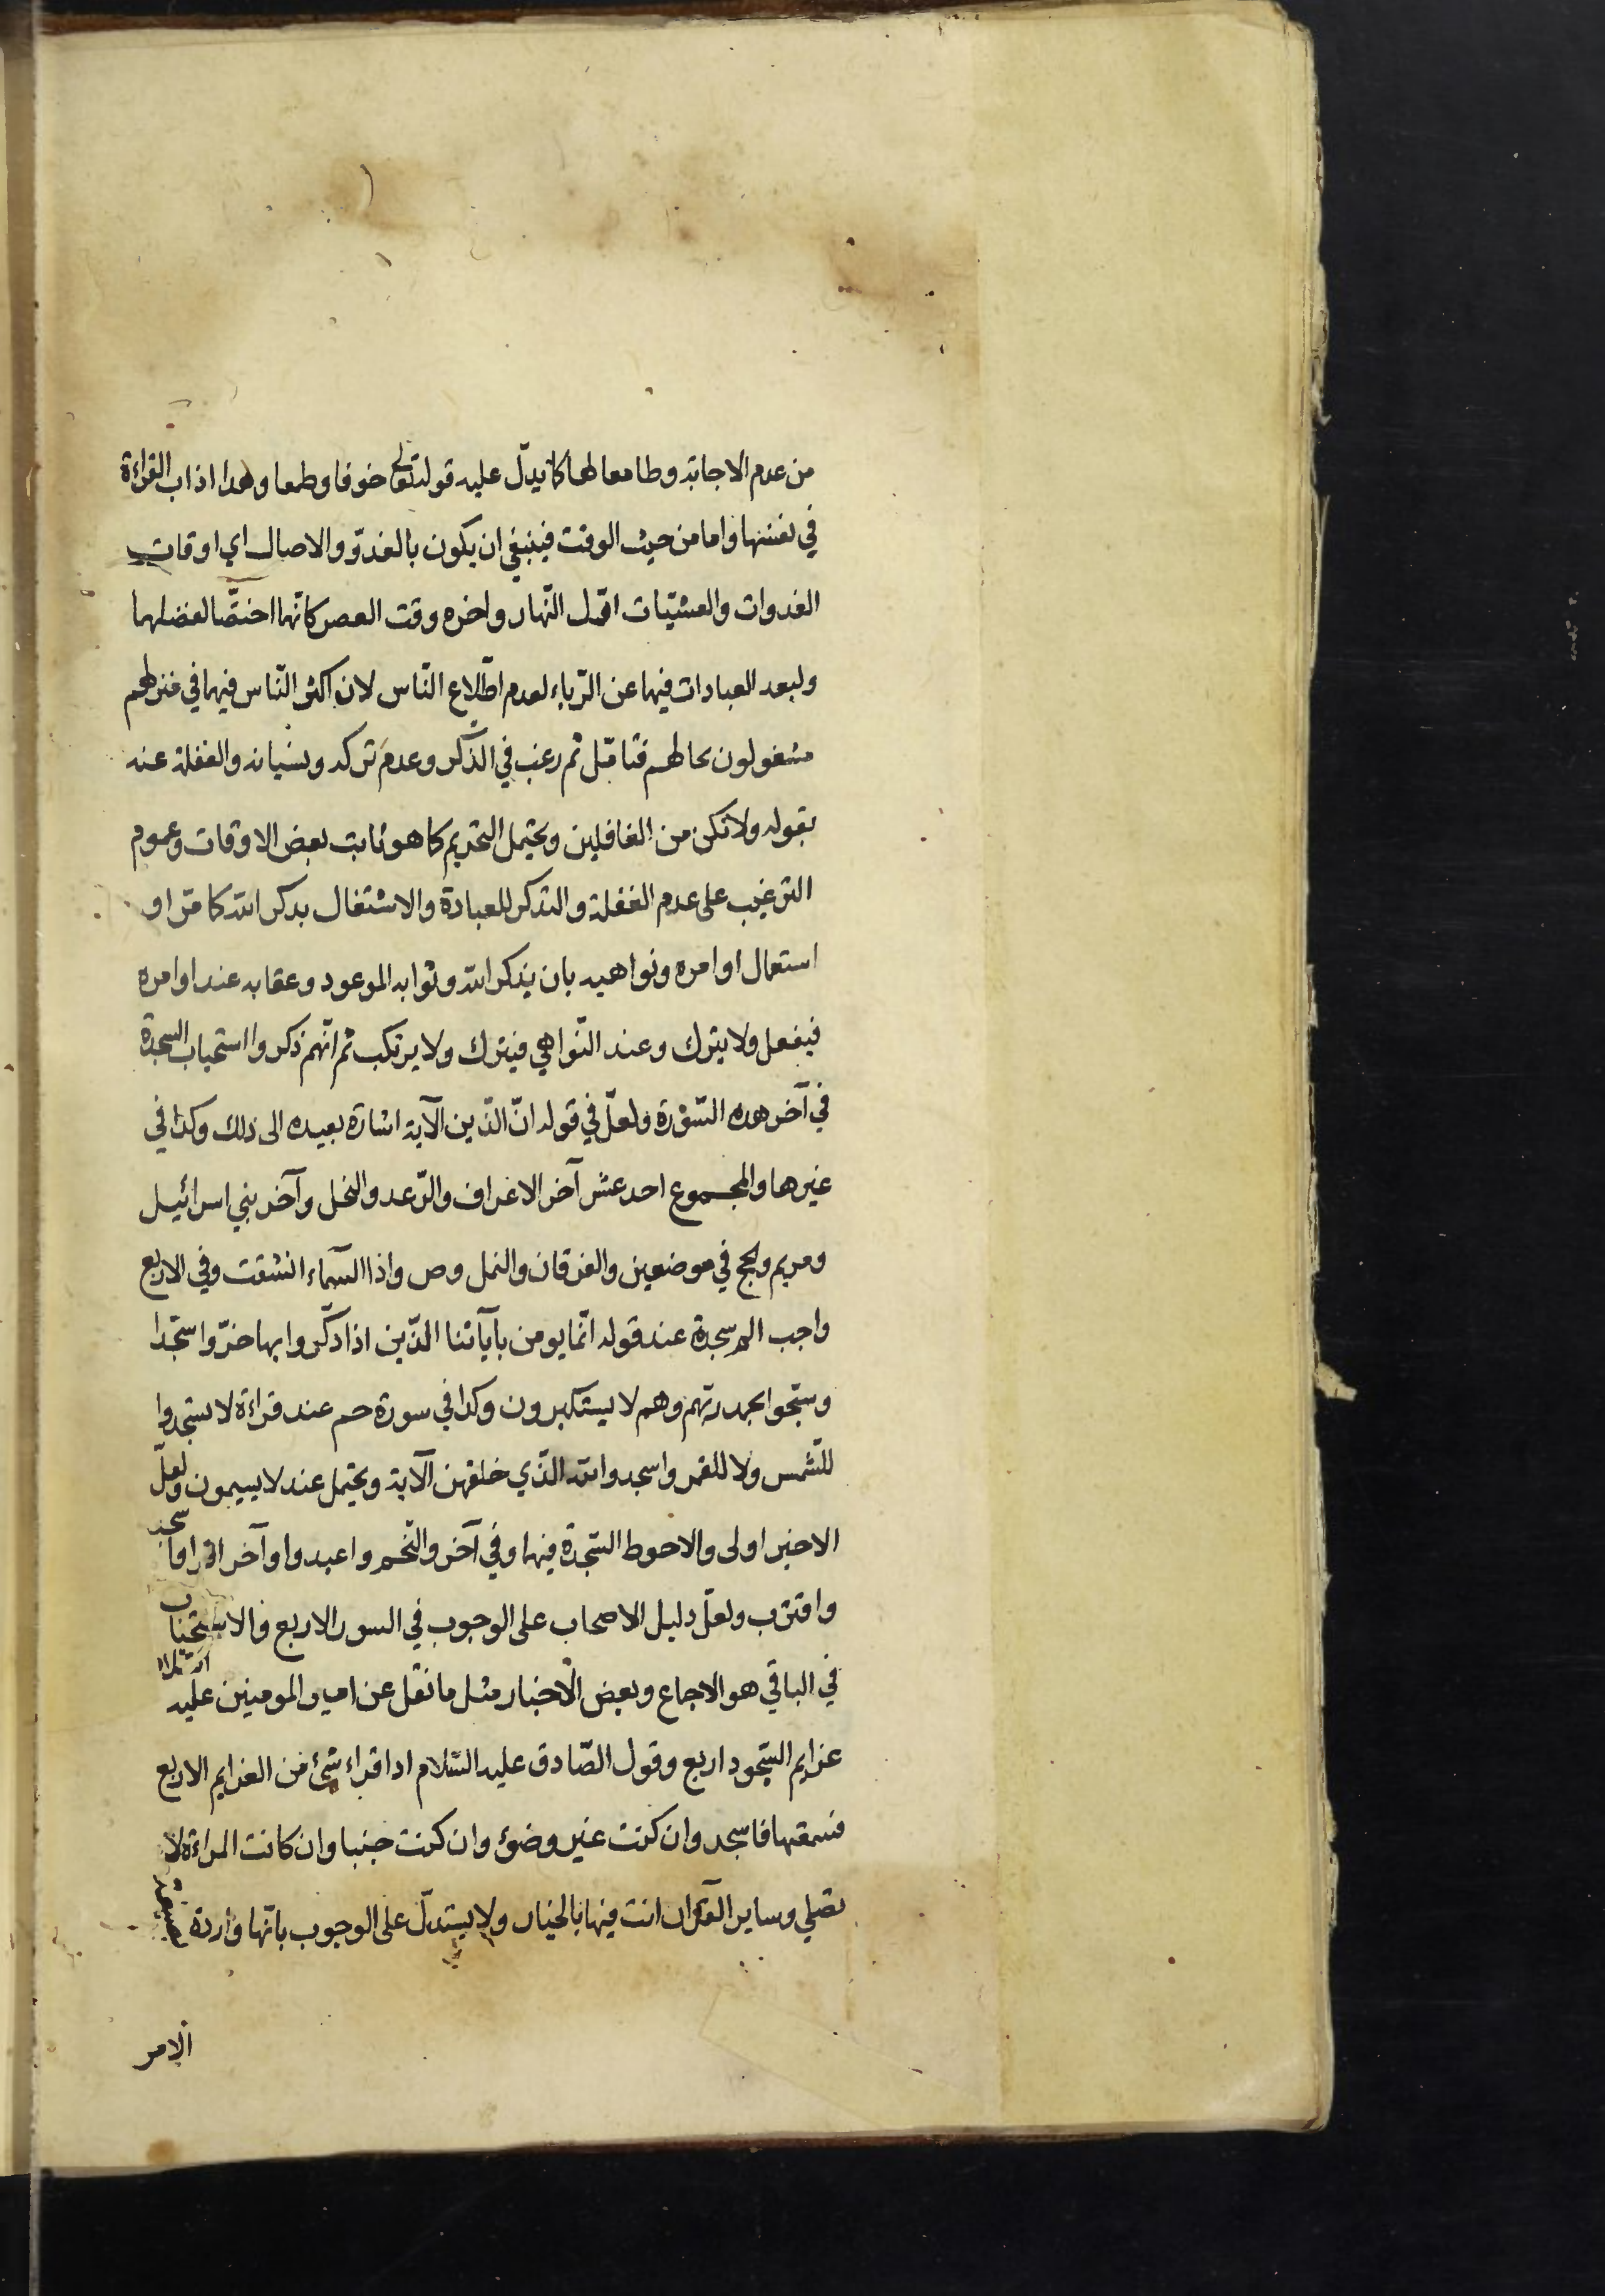 من عدم الاجابة وطامعا لها كما يدلّ عليه قوله تعالى خوفا وطمعا وهذا اداب القراءة
في نفسها واما من حيث الوقت فينبغي ان يكون بالغدوّ والاصال اي اوقات
الغدوات والعشيّات اوّل النّهار واخره وقت العصر كانّهما اختصّا لفضلهما
ولبعد العبادات فيهما عن الرّياء لعدم اطّلاع النّاس لان اكثر النّاس فيهما في منزلهم
مشغولون بحالهم فتامّل ثم رغب في الذّكر وعدم تركه ونسيانه والغفلة عنه
بقوله ولا تكن من الغافلين ويحتمل التحريم كما هو ثابت بعض الاوقات وعموم
الترغيب على عدم الغفلة والتذكر للعبادة والاشتغال بذكر الله كما مرّ او
استعمال اوامره ونواهيه بان يذكر الله وثوابه الموعود وعقابه عند اوامره
فيفعل ولا يترك وعند النّواهي فيترك ولا يرتكب ثم انّهم ذكروا استحباب السجدة
في آخر هذه السّورة ولعلّ في قوله انّ الذّين الآية اشارة بعيده الى ذلك وكذا في
غيرها والمجموع احد عشر آخر الاعراف والرّعد والنحل وآخر بني اسرائيل
ومريم والحج في موضعين والفرقان والنمل وص واذا السّماء انشقت وفي الاربع
واجب الم سجدة عند قوله انّما يومن بآياتنا الذّين اذا ذكّروا بها خرّوا سجّدا
وسبّحوا بحمد ربّهم وهم لا يستكبرون وكذا في سورة حم عند قراءة لا تسجدوا
للشّمس ولا للقمر واسجدوا لله الذّي خلقهن الآية ويحتمل عند لا يسيمون ولعلّ
الاخير اولى والاحوط السّجدة فيهما وفي آخر والنّجم واعبدوا وآخر اقرا واسجد
واقترب ولعلّ دليل الاصحاب على الوجوب في السور الاربع والاستحباب
في الباقي هو الاجماع وبعض الاخبار مثل ما نقل عن امير المومنين عليه السّلام
عزايم السّجود اربع وقول الصّادق عليه السّلام اذا قراء شئ من العزايم الاربع
فسمعتها فاسجد وان كنت غير وضوئ وان كنت جنبا وان كانت المراءة لا
تصلي وساير القرآن انت فيها بالخيار ولا يستدلّ على الوجوب بانّها واردة بصيغة
الامر